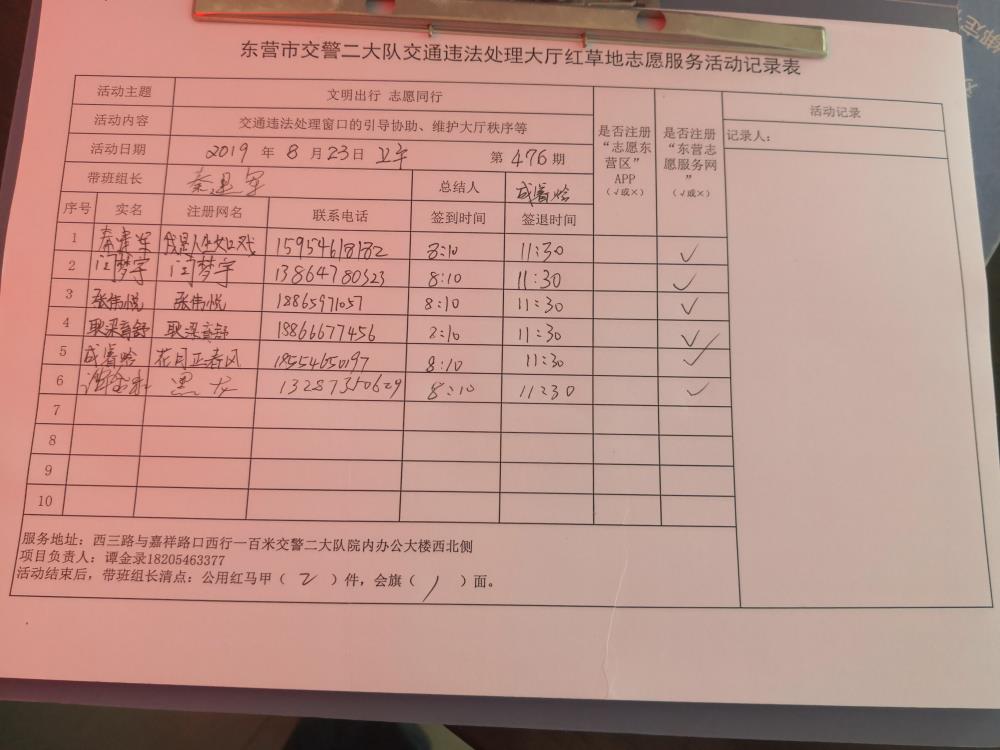 东营市交警二大队交通违法处理大厅红草地志愿服务活动记录表
活动主题 文明出行 志愿同行
活动内容 交通违法处理窗口的引导协助、维护大厅秩序等
活动日期 2019 年 8 月 23日 上午 第 476 期
带班组长 秦建军 总结人
是否注册“志愿东营区”APP(√或×)
是否注册“东营志愿服务网”(√或×)
活动记录
记录人:
序号 实名 注册网名 联系电话 签到时间 签退时间
1 秦建军 15954618182 8:10 11:30 ✓
2 闫梦宇 闫梦宇 13864780323 8:10 11:30 ✓
3 张伟悦 张伟悦 18865971057 8:10 11:30 ✓
4 18866677456 2:10 11:30 ✓
5 花月正春风 18554650197 8:10 11:30 ✓
6 黑龙 13287350629 8:10 11:30 ✓
7
8
9
10
服务地址:西三路与嘉祥路口西行一百米交警二大队院内办公大楼西北侧
项目负责人:谭金录18205463377
活动结束后,带班组长清点:公用红马甲( 2 )件,会旗( 1 )面。